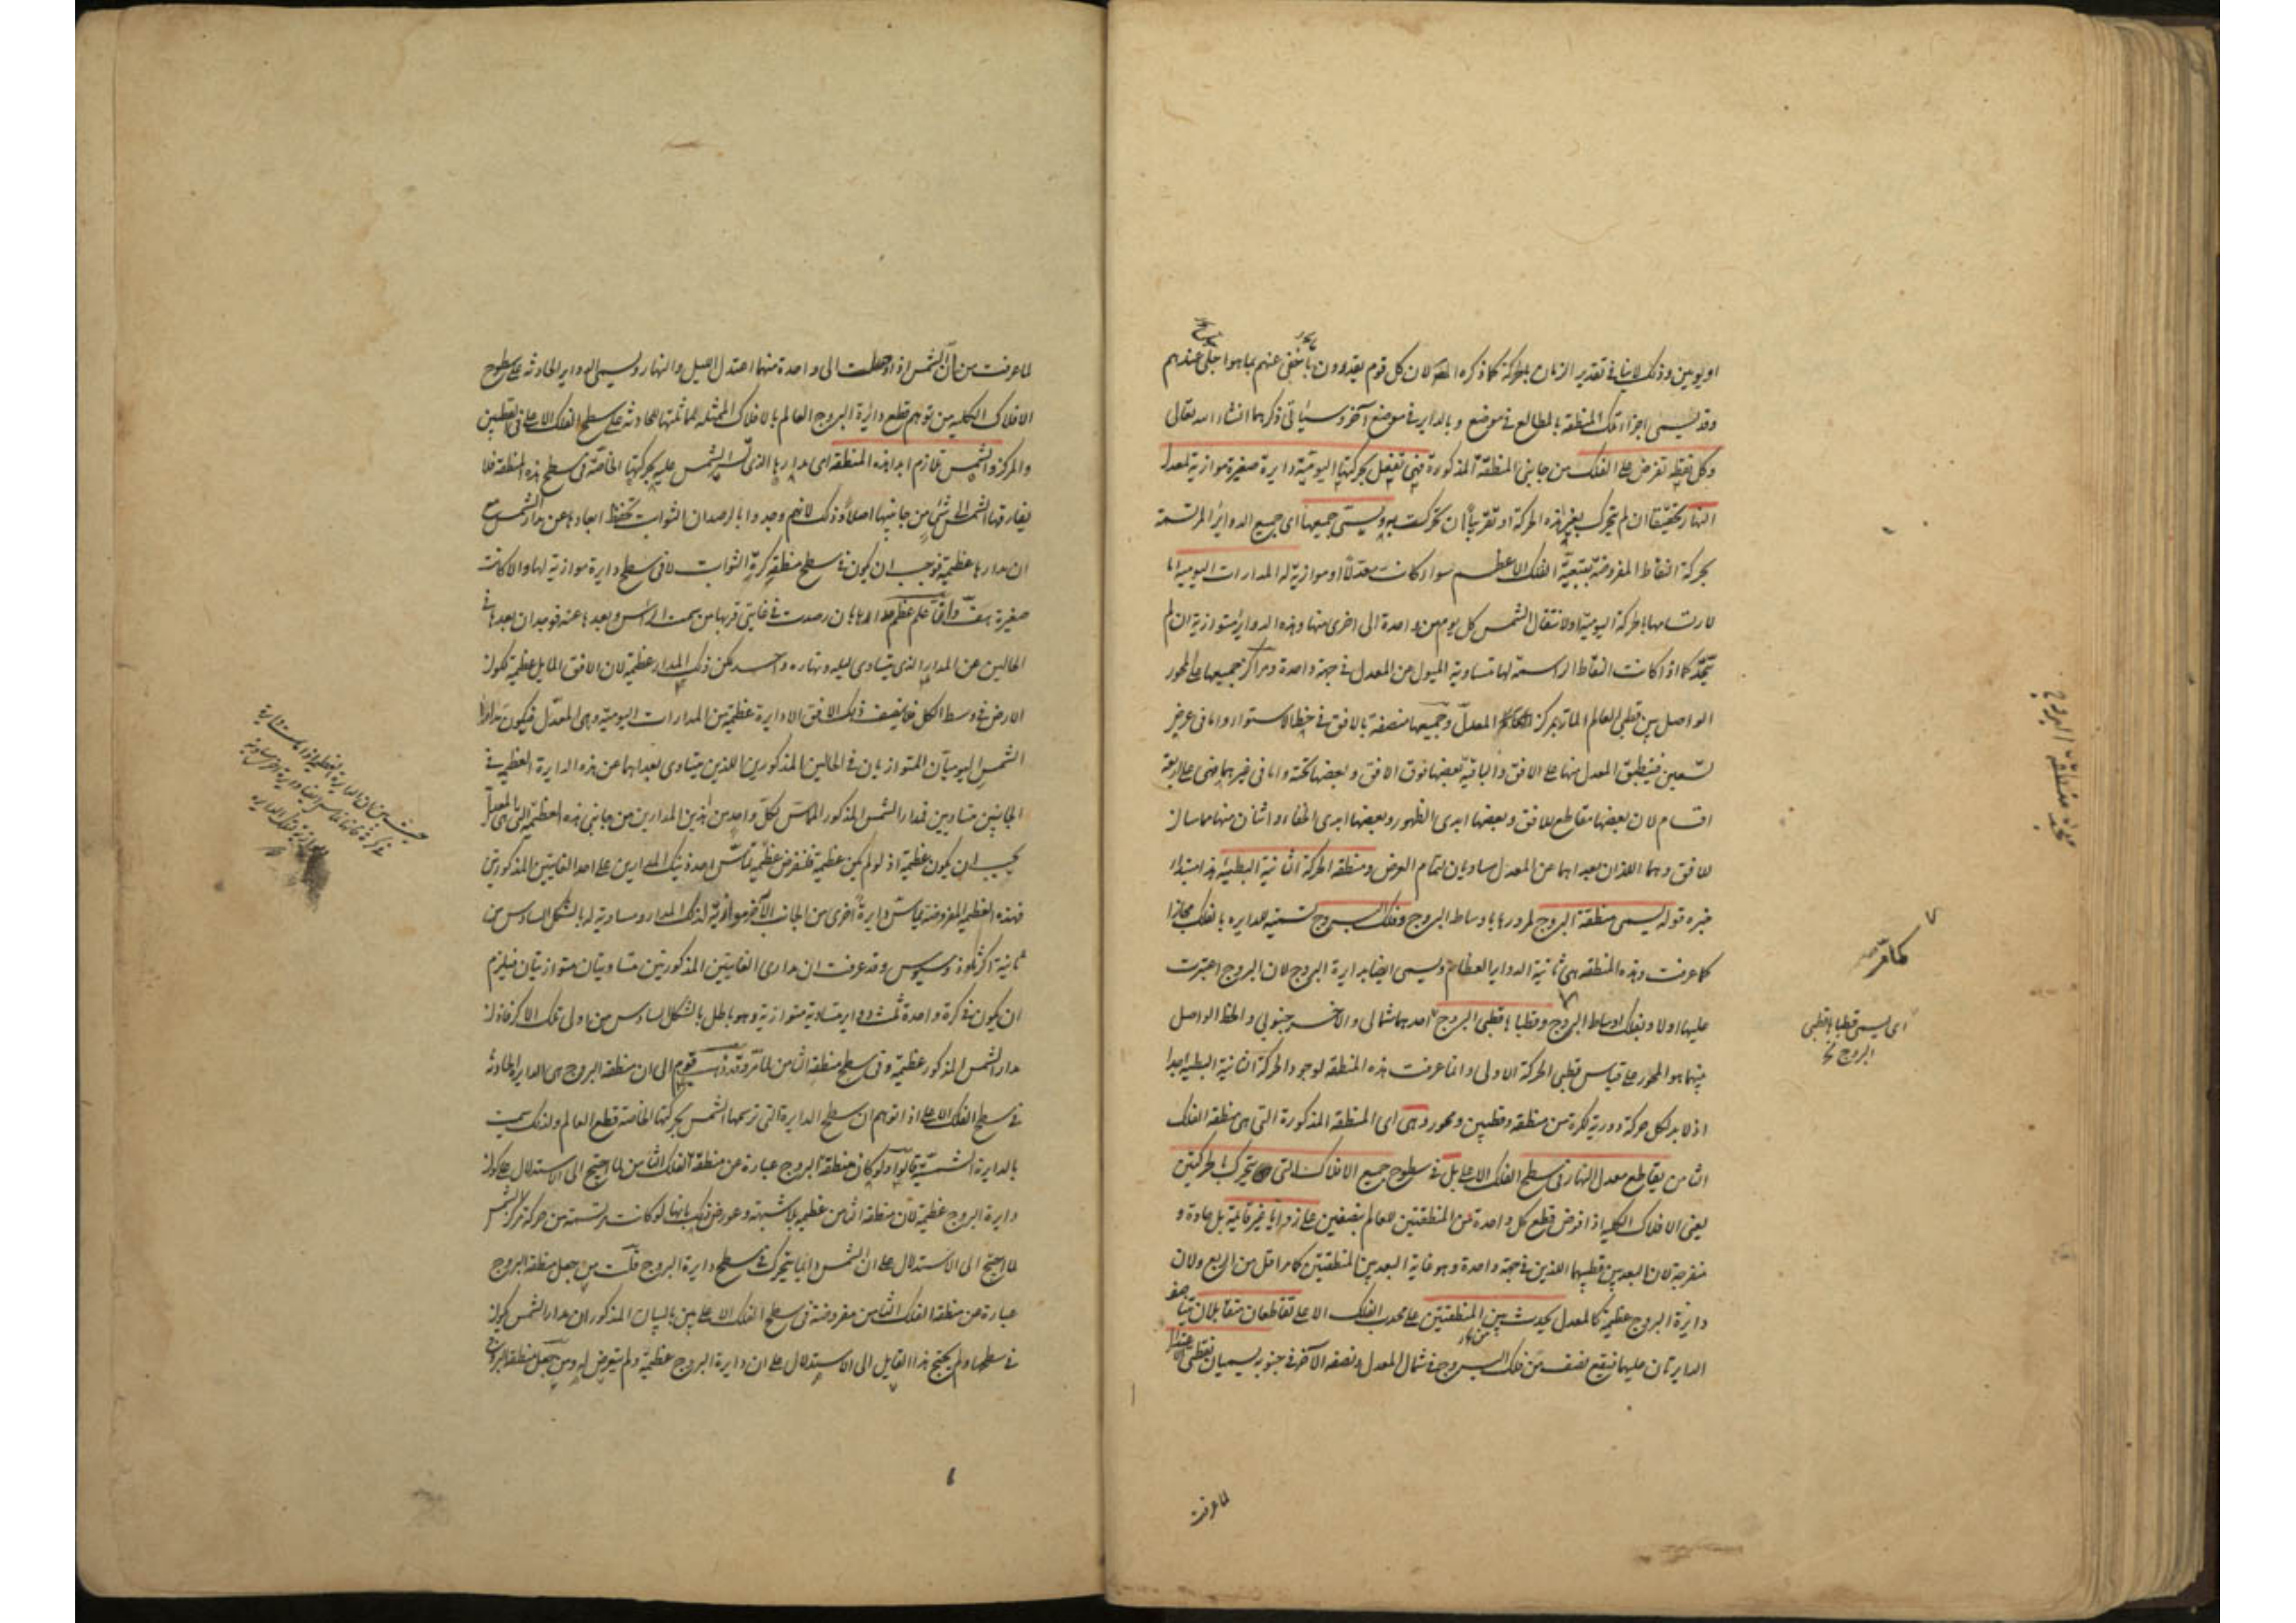 او يومين وذلك لا ينافي تقدير الزمان بالحركة كما ذكره المص لان كل قوم يقدرون ما خفي عنهم بما هو اجلى عندهم
وقد يسمى اجزاء تلك المنطقة بالمطالع في موضع وبالداير في موضع آخر وسيأتي ذكرهما انشاء الله تعالى
وكل نقطة تفرض على الفلك من جانبي المنطقة المذكورة فهي تفعل بحركتها اليومية دايرة صغيرة موازية لمعدل
النهار تحقيقا ان لم تتحرك بغير هذه الحركة او تقريبا ان تحركت به ويسمى جميعها اى جميع الدوائر المرتسمة
بحركة النقاط المفروضة بتبعية الفلك الاعظم سواء كانت معدلا او موازية له المدارات اليومية اما
لارتسامها بالحركة اليومية او لانتقال الشمس كل يوم من واحدة الى اخرى منها وهذه الدوائر متوازية ان لم
تتحد كما اذا كانت النقاط الراسمة لها متساوية الميول من المعدل في جهة واحدة ومراكز جميعها على المحور
الواصل بين قطبي العالم المار بمركز المعدل وجميعها منصفة بالافق في خط الاستواء واما في عرض
تسعين فينطبق المعدل منها على الافق والباقية بعضها فوق الافق وبعضها تحته واما في غيرهما فهي على اربعة
اقسام لان بعضها مقاطع للافق وبعضها ابدى الظهور وبعضها ابدى الخفاء واثنان منها مماسان
للافق وهما اللذان بعداهما عن المعدل مساويان لتمام العرض ومنطقة الحركة الثانية البطيئة هذا مبتداء
خبره قوله يسمى منطقة البروج لمرورها باوساط البروج وفلك البروج تسمية للدايرة بالفلك مجازا
كما عرفت وهذه المنطقة هي ثانية الدواير العظام ويسمى ايضا بدايرة البروج لان البروج اعتبرت
عليها اولا وبفلك اوساط البروج وقطباها قطبي البروج احدهما شمالي والآخر جنوبي والخط الواصل
بينهما هو المحور على قياس قطبي الحركة الاولى وانما عرفت هذه المنطقة لوجود الحركة الثانية البطيئة ابدا
اذ لا بد لكل حركة دورية لكرة من منطقة وقطبين ومحور وهى اى المنطقة المذكورة التى هي منطقة الفلك
الثامن يقاطع معدل النهار في سطح الفلك الاعلى بل في سطوح جميع الافلاك التى تتحرك بالحركتين
يعنى الافلاك الكلية اذا فرض قطع كل واحدة من المنطقتين للعالم بنصفين على زوايا غير قائمة بل حادة و
منفرجة لان البعد بين قطبيهما اللذين في جهة واحدة وهو غاية البعد بين المنطقتين كما مر اقل من الربع ولان
دايرة البروج عظيمة كالمعدل يحدث بين المنطقتين على محدب الفلك الاعلى تقاطعان متقابلان يتناصف
الدايرتان عليهما فيقع نصف من فلك البروج في شمال المعدل ونصفه الآخر في جنوبه يسميان نقطتى الاعتدال
كما مر
اى يسمى قطباها قطبي
البروج
لما عرفت
لما عرفت من ان الشمس اذا وصلت الى واحدة منهما اعتدل الليل والنهار ويسمى الدواير الحادثة على سطوح
الافلاك الكلية من توهم قطع دائرة البروج العالم بالافلاك الممثلة لمماثلتها للحادثة على سطح الفلك الاعلى في القطبين
والمركز والشمس تلازم ابدا هذه المنطقة اى مدارها الذى تسير الشمس عليه بحركتها الخاصة في سطح هذه المنطقة فلا
يفارقها الشمس الى شئ من جانبيها اصلا وذلك لانهم وجدوا بالارصاد ان الثوابت تحفظ ابعادها عن مدار الشمس مع
ان مدارها عظيمة فوجب ان يكون في سطح منطقة كرة الثوابت لا في سطح دايرة موازية لها والا كانت
صغيرة وانما علم عظم مدارها بان رصدت في غايتي قربها من سمت الرأس وبعدها عنه فوجد ان بعدها في
الحالين عن المدار الذى يتساوى ليله ونهاره واحد لكن ذلك المدار عظيمة لان الافق المايل عظيمة لكون
الارض في وسط الكل فلا ينصف ذلك الافق الا دايرة عظيمة من المدارات اليومية وهى المعدل فيكون مدارا
الشمس اليوميان المتوازيان في الحالين المذكورين اللذين يتساوى بعداهما عن هذه الدايرة العظيمة في
الجانبين متساويين فمدار الشمس المذكور المماس لكل واحد من هذين المدارين من جانبي هذه العظيمة التى هى المعدل
يجب ان يكون عظيمة اذ لو لم يكن عظيمة فلنفرض عظيمة تماس احد ذينك المدارين على احد الغايتين المذكورتين
فهذه العظيمة المفروضة يماس دايرة اخرى من الجانب الآخر موازية لذلك المدار ومساوية له بالشكل السادس من
ثانية اكر ثاوذوسيوس وقد عرفت ان مدارى الغايتين المذكورتين متساويتان متوازيتان فيلزم
ان يكون في كرة واحدة ثلث دواير متساوية متوازية وهو باطل بالشكل السادس من اولى تلك الاكر فاذن
مدار الشمس المذكور عظيمة وفي سطح منطقة الثامن لما مر وقد ذهب قوم الى ان منطقة البروج هى الدايرة الحادثة
في سطح الفلك الاعلى اذا توهم ان سطح الدايرة التى ترسمها الشمس بحركتها الخاصة قطع العالم ولذلك سميت
بالدايرة الشمسية قالوا ولو كان منطقة البروج عبارة عن منطقة الفلك الثامن لما احتيج الى الاستدلال على كون
دايرة البروج عظيمة لان منطقة الثامن عظيمة بلا شبهة وعورض ذلك بانها لو كانت مرتسمة من حركة مركز الشمس
لما احتيج الى الاستدلال على ان الشمس دائما يتحرك في سطح دايرة البروج قلت من جعل منطقة البروج
عبارة عن منطقة الفلك الثامن مفروضة في سطح الفلك الاعلى بين بالبيان المذكور ان مدار الشمس يكون
في سطحها ولم يحتج هذا القايل الى الاستدلال على ان دايرة البروج عظيمة ولم يتعرض له ومن جعل منطقة البروج